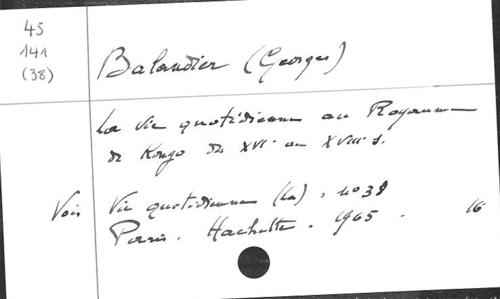 45
141
(38)
Balandier (Georges)
La vie quotidienne au Royaume
de Kongo du XVIe au XVIIIe s.
Voir Vie quotidienne (la), no 38
Paris. Hachette. 1965. 16